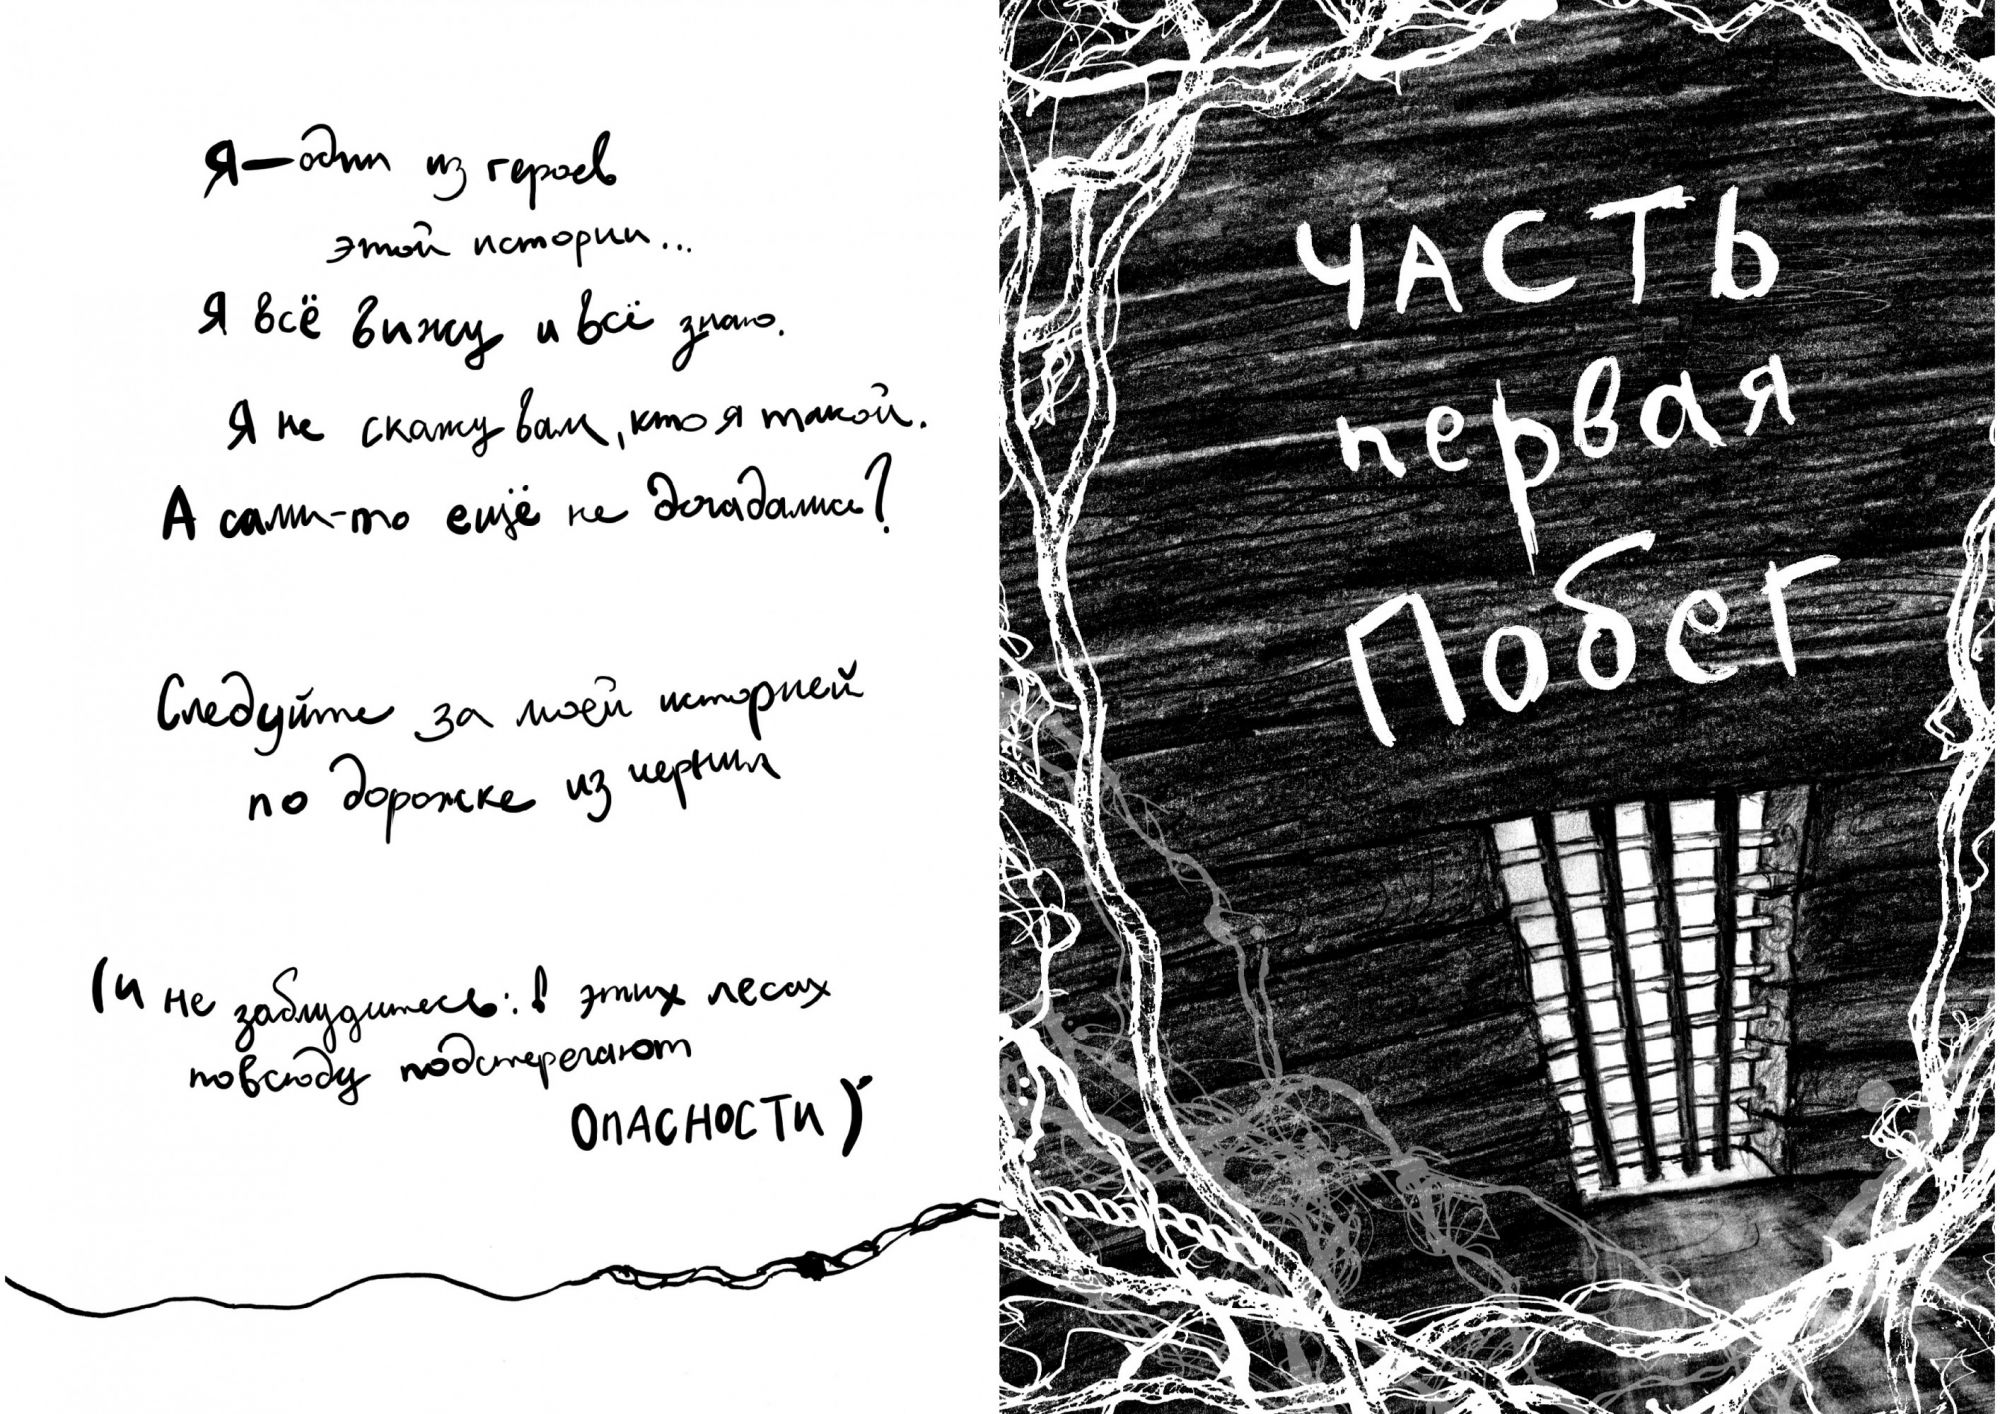 Я — один из героев
этой истории...
Я всё вижу и всё знаю.
Я не скажу вам, кто я такой.
А сами-то ещё не догадались?
Следуйте за моей историей
по дорожке из чернил
(и не заблудитесь: в этих лесах
повсюду подстерегают
ОПАСНОСТИ)
ЧАСТЬ
первая
Побег